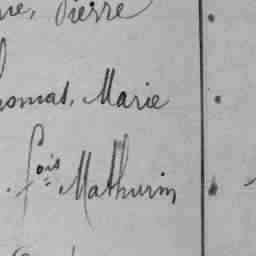 Pierre
Thomas, Marie
fois Mathurin